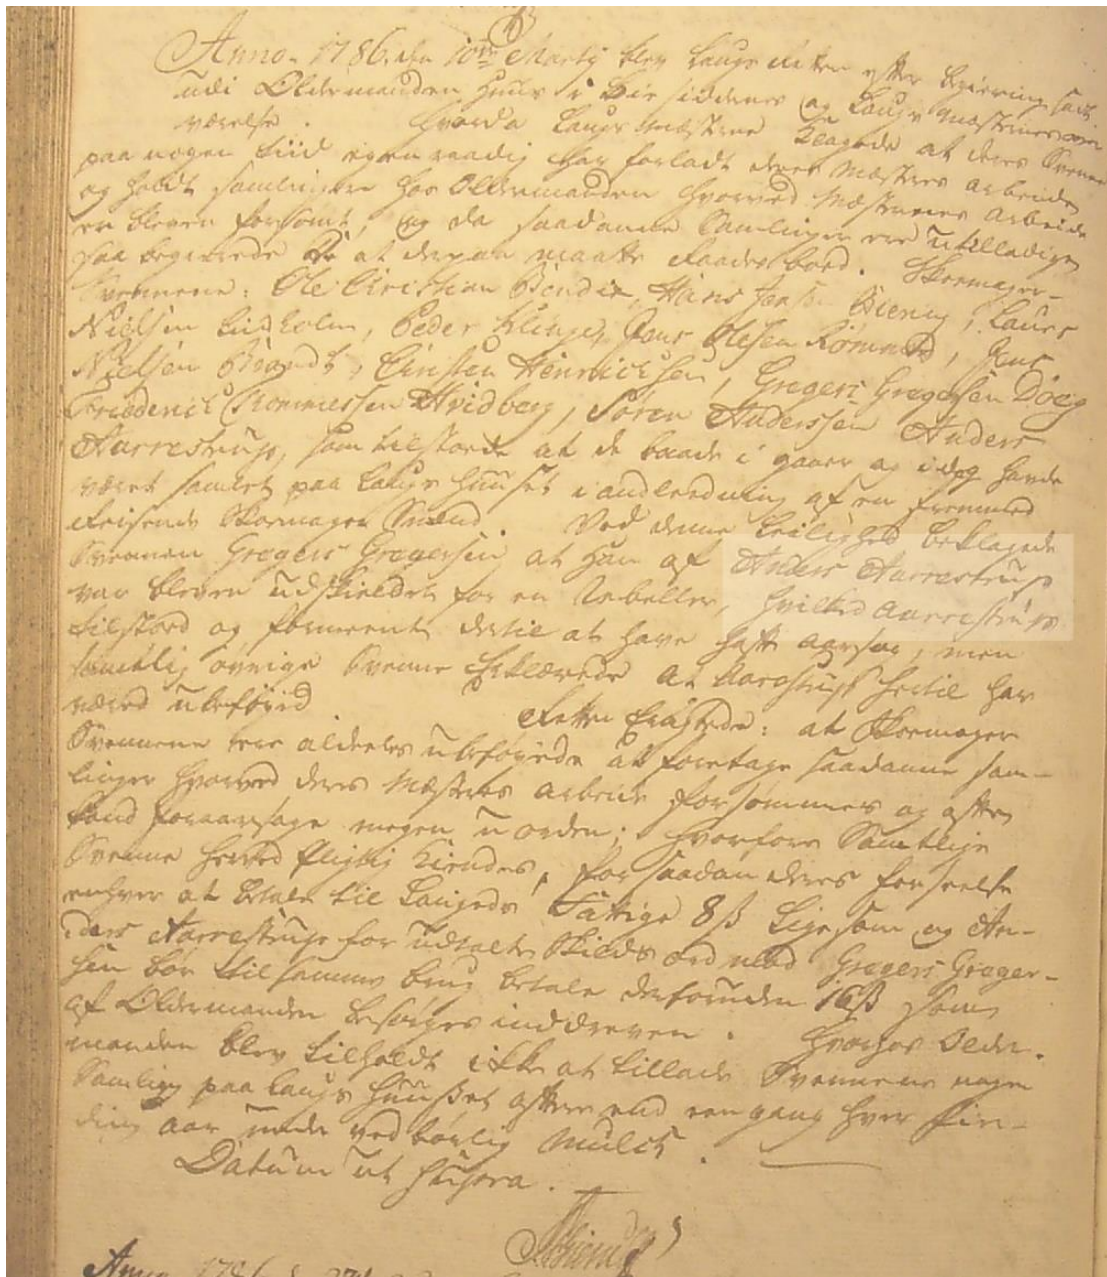 Anno. 1786. den 10de Martj blev Laugs Retten efter begiering sadt
udi Oldermanden Huus i siddenes og Laugs Mæsternes over
værelse. Hvorda Laugs Mæsterne klagede at deres Svenne
paa nogen tiid egenraadig har forladt deres Mæsters arbeide
og holdt samlinger hos Oldermanden hvorved Mæsternes arbeide
er bleven forsømt, og da saadanne Samlinger ere utilladige
saa begierede de at derpaa maatte raades bood. Skoemager-
Svennene: Ole Christian Bendix, Hans Jensen Biering, Laurs
Nielsen Lindholm, Peder Klinge, Jens Olesen Rømmed, Jens
Nielsen Brandt, Christen Henrichsen, Gregers Gregersen Døeg
Friederich Rommessen Hvidberg, Søren Anderssen Anders
Aarrestrup, som tilstoede at de baade i gaar og i dag havde
været samlet paa Laugs Huuset i andledning af en fremmed
Reisende Skoemager Svend. Ved denne Leilighed beklagede
Svennen Gregers Gregersen at han af Anders Aarrestrup
var bleven udskieldet for en Rebeller, hvilket Aarrestrup
tilstoed og formeente dertil at have haft aarsag, men
samtlig øvrige Svenne Erklærede at Aarestrup hertil har
væred ubeføyed Retten Eragtede: at Skoemager
Svennene ere aldeeles ubeføyede at foretage saadanne sam-
linger hvorved deres Mæsters arbeide forsømmes og ofte
kand foraarsage megen uorden; hvorfore Samtlige
Svenne herved pligtig kiendes, for saadan deres forseelse
enhver at betale til Laugeds Fattige 8 ß Ligesom og An-
ders Aarrestrup for udtalte Skields ord mod Gregers Greger-
sen bør til samme brug betale desforuden 16 ß som
af Oldermanden besørges inddreven. Hvorhos Older-
manden blev tilholdt ikke at tillade Svennene nogen
Samling paa Laugs Huuset oftere end een gang hver fier-
ding aar under vedbørlig Mulct.
Datum ut supra.
Anno 1786 d. 27de